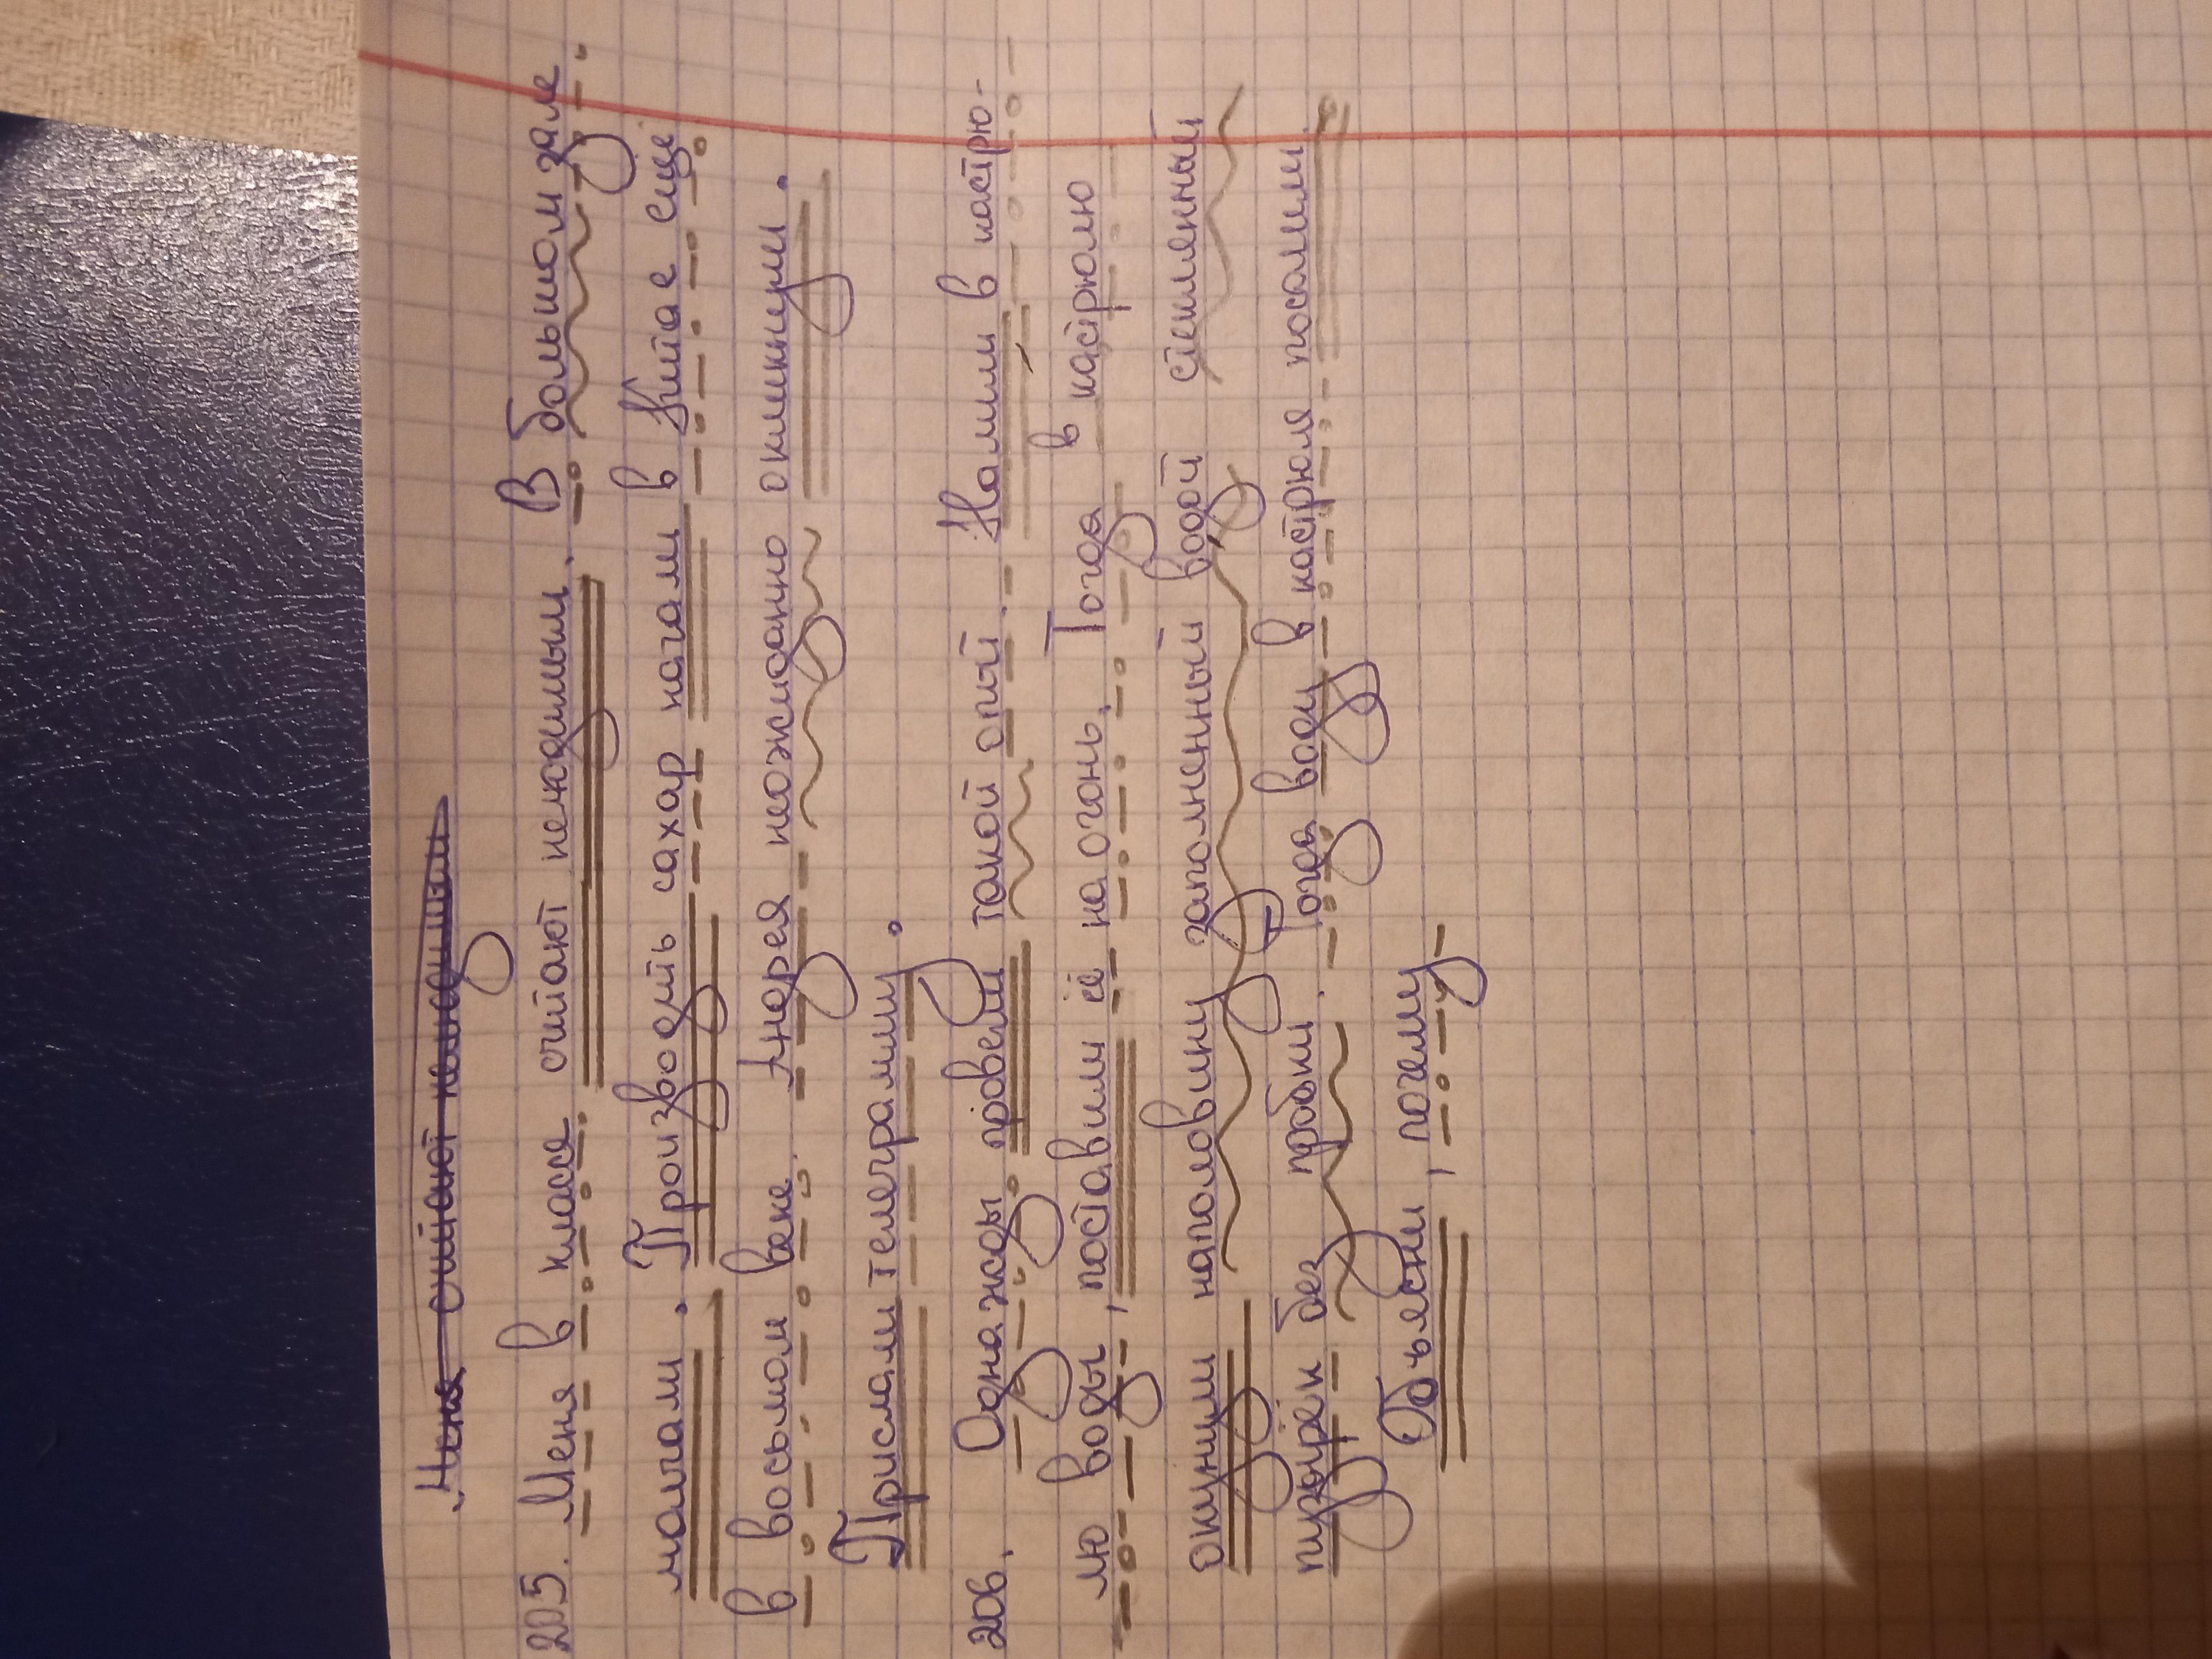 Меня считают нелюдимым
205. Меня в классе считают нелюдимым. В большом зале
молчали. Производить сахар начали в Китае еще
в восьмом веке. Андрея неожиданно окликнули.
Прислали телеграмму.
206. Однажды провели такой опыт. Налили в кастрю-
лю воды, поставили её на огонь. Тогда в кастрюлю
окунули наполовину заполненный водой стеклянный
пузырёк без пробки. Тогда воду в кастрюле посолили.
Объясни, почему